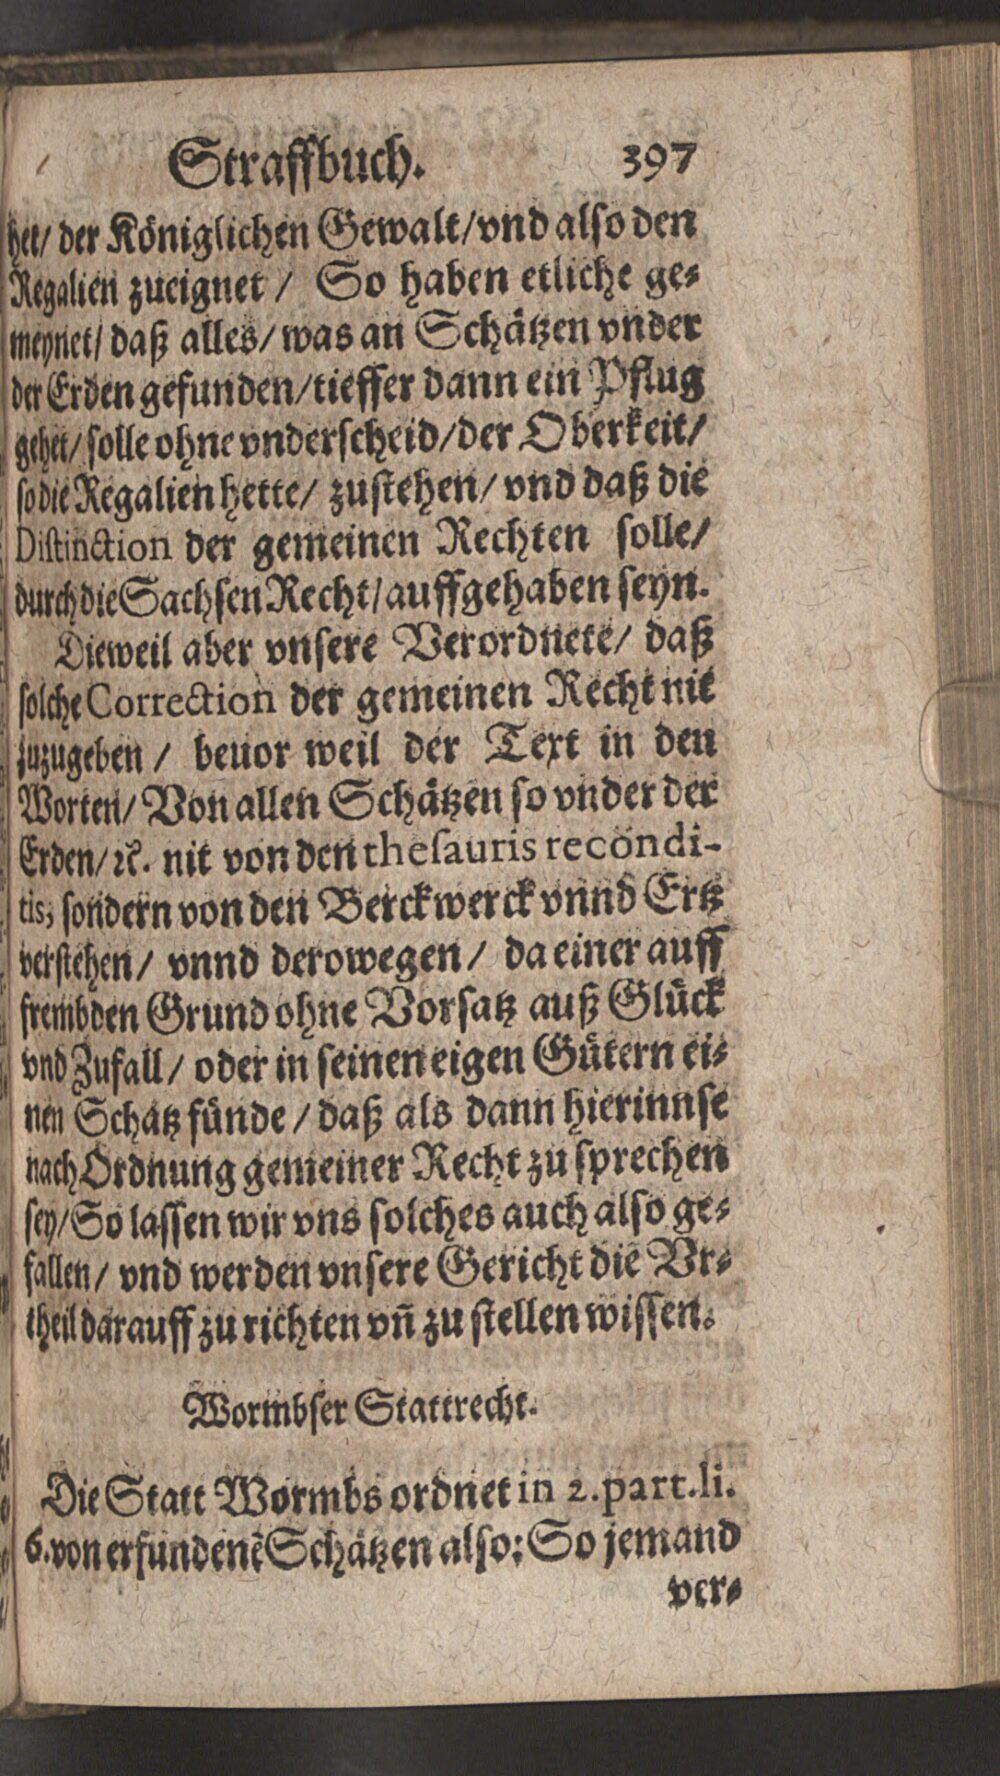 Straffbuch. 397
het/ der Königlichen Gewalt/vnd also den
Regalien zueignet / So haben etliche ge-
meynet/ daß alles/ was an Schätzen vnder
der Erden gefunden/tieffer dann ein Pflug
gehet/ solle ohne vnderscheid/der Oberkeit/
so die Regalien hette/ zustehen/ vnd daß die
Distinction der gemeinen Rechten solle/
durch die Sachsen Recht/auffgehaben seyn.
Dieweil aber vnsere Verordnete/ daß
solche Correction der gemeinen Recht nit
zuzugeben / beuor weil der Text in den
Worten/ Von allen Schätzen so vnder der
Erden/ ꝛc. nit von den thesauris recondi-
tis, sondern von den Berckwerck vnnd Ertz
verstehen/ vnnd derowegen/ da einer auff
frembden Grund ohne Vorsatz auß Glück
vnd Zufall/ oder in seinen eigen Gütern ei-
nen Schatz fünde / daß als dann hierinnse
nach Ordnung gemeiner Recht zu sprechen
sey/ So lassen wir vns solches auch also ge-
fallen/ vnd werden vnsere Gericht die Vr-
theil darauff zu richten vñ zu stellen wissen.
Wormbser Stattrecht.
Die Statt Wormbs ordnet in 2. part. li.
6. von erfundenē Schätzen also: So jemand
ver-